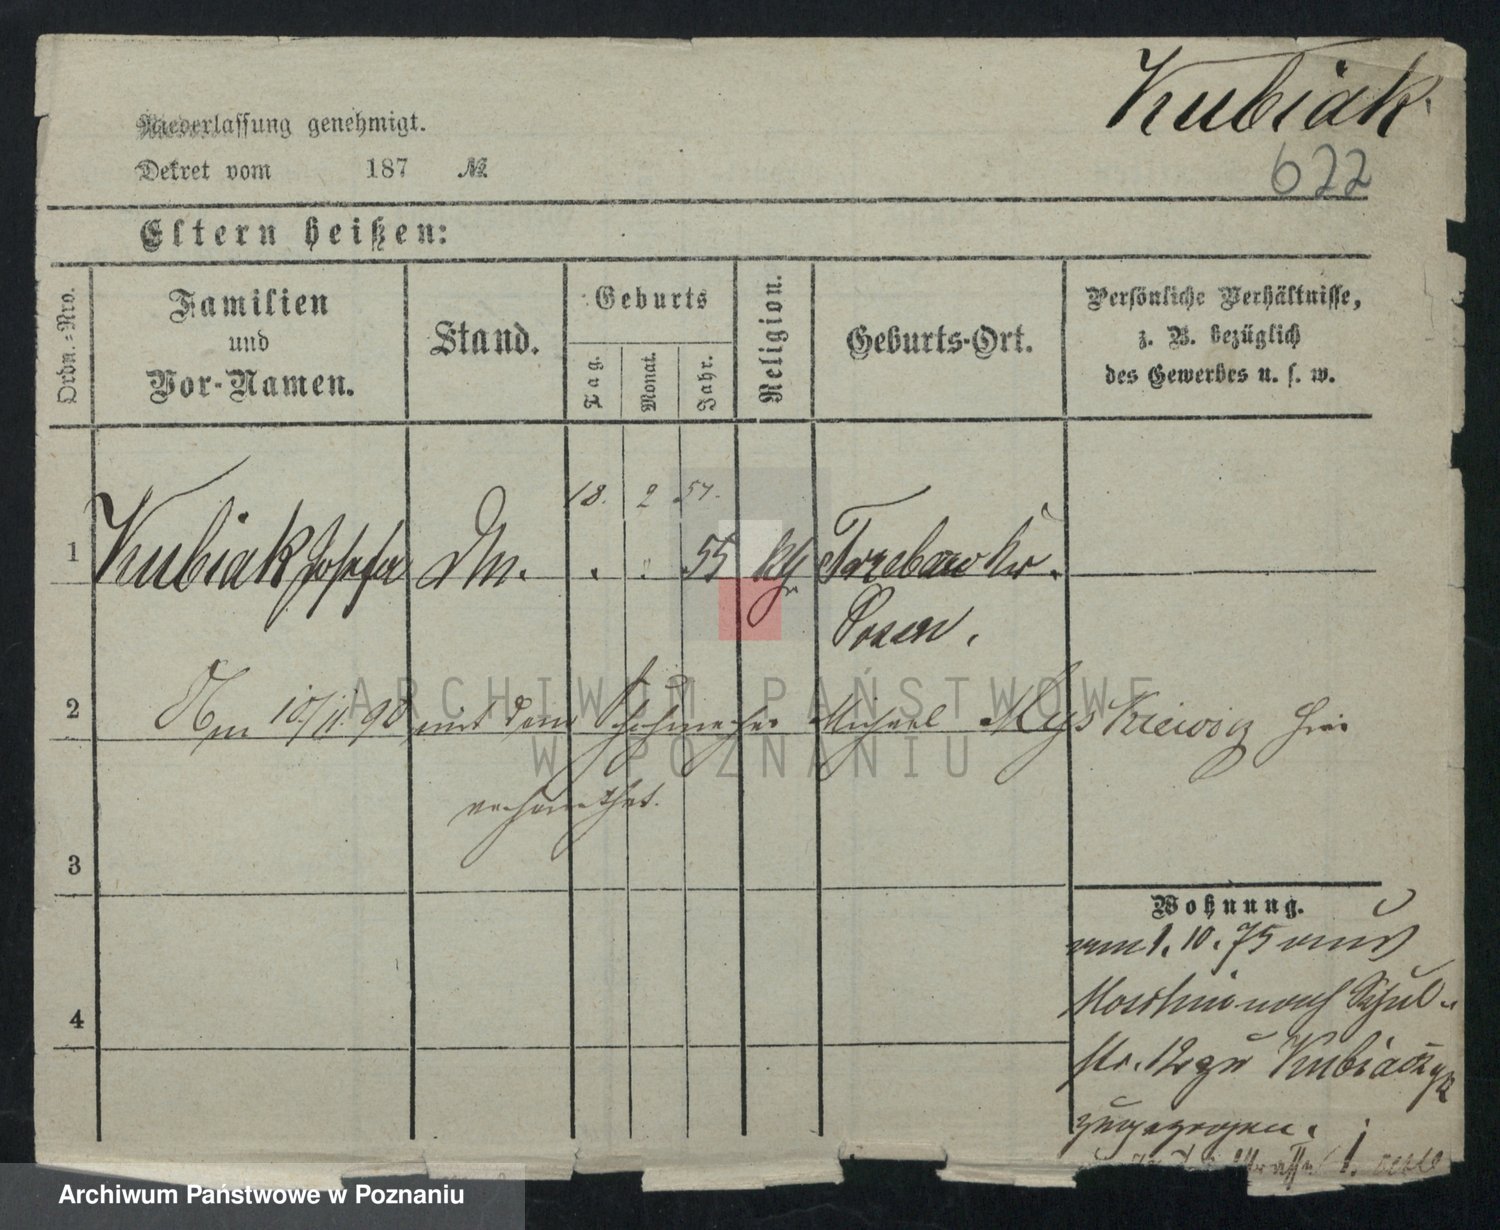 Kubiak.
622
Niederlassung genehmigt.
Dekret vom 187 №
Eltern heißen:
Ordn.-Nro.
Familien
und
Vor-Namen.
Stand.
Geburts
Tag.
Monat.
Jahr.
Religion.
Geburts-Ort.
Persönliche Verhältnisse,
z. B. bezüglich
des Gewerbes u. s. w.
18. 2 57.
1 Kubiak Josefa Dm. 55 kg Trzebaw Kr.
Posen.
2 Am 10/11.90 mit dem Schuhmacher Michael Myskiewicz hier
verheirathet.
3
Wohnung.
am 1.10.75 aus
nach Schul-
str. 12 zu
zugezogen.
4
ARCHIWUM PAŃSTWOWE
W POZNANIU
Archiwum Państwowe w Poznaniu